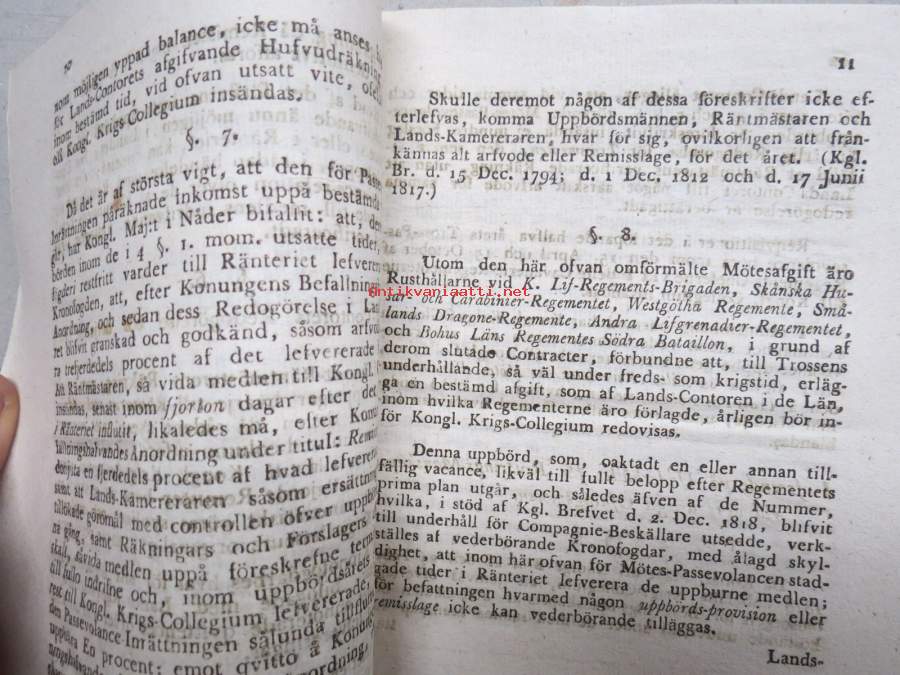 10
nom möjligen yppad balance, icke må anses
Ex Lands-Contorets afgifvande Hufvudräkning
inom bestämd tid, vid ofvan utsatt vite,
till Kongl. Krigs-Collegium insändas.
§. 7.
Då det är af största vigt, att den för
Inrättningen påräknade inkomst uppå bestämda
har Kongl. Maj:t i Nåder bifallit: att,
inom de i 4 §. 1. mom. utsatte tider,
restfritt varder till Ränteriet
Kronofogden, att, efter Konungens
Anordning, och sedan dess Redogörelse i
ret blifvit granskad och godkänd, såsom
ra trefjerdedels procent af det lefvererade
Att Räntmästaren, så vida medlen till Kongl.
insändas, senast inom fjorton dagar efter det
i Ränteriet influtit, likaledes må, efter
Anordning under titul:
en fjerdedels procent af hvad
samt att Lands-Kamereraren såsom
tillökade göromål med controllen öfver
na gång, samt Räkningars och Förslagers
skall, såvida medlen uppå föreskrefne
till fullo indrifne och, inom uppbördsårets
rest till Kongl. Krigs-Collegium lefvererade,
den Passevolance-Inrättningen sålunda
uppbära En procent; emot qvitto å
11
Skulle deremot någon af dessa föreskrifter icke ef-
terlefvas, komma Uppbördsmännen, Räntmästaren och
Lands-Kamereraren, hvar för sig, ovilkorligen att från-
kännas alt arfvode eller Remisslage, för det året. (Kgl.
Br. d. 15 Dec. 1794; d. 1 Dec. 1812 och d. 17 Junii
1817.)
§. 8.
Utom den här ofvan omförmälte Mötesafgift äro
Rusthållarne vid K. Lif-Regements-Brigaden, Skånska Hu-
sar- och Carabinier-Regementet, Westgötha Regemente, Små-
lands Dragone-Regemente, Andra Lifgrenadier-Regementet,
och Bohus Läns Regementes Södra Bataillon, i grund af
derom slutade Contracter, förbundne att, till Trossens
underhållande, så väl under freds- som krigstid, erläg-
ga en bestämd afgift, som af Lands-Contoren i de Län,
inom hvilka Regementerne äro förlagde, årligen bör in-
för Kongl. Krigs-Collegium redovisas.
Denna uppbörd, som, oaktadt en eller annan till-
fällig vacance, likväl till fullt belopp efter Regementets
prima plan utgår, och således äfven af de Nummer,
hvilka, i stöd af Kgl. Brefvet d. 2. Dec. 1818, blifvit
till underhåll för Compagnie-Beskällare utsedde, verk-
ställes af vederbörande Kronofogdar, med ålagd skyl-
dighet, att inom här ofvan för Mötes-Passevolancen stad-
gade tider i Ränteriet lefverera de uppburne medlen;
för befattningen hvarmed någon uppbörds-provision eller
remisslage icke kan vederbörande tilläggas.
Lands-
antikvariaatti.net